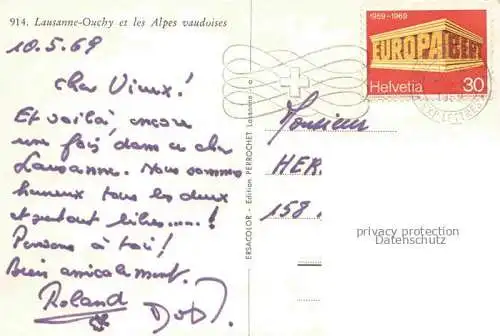 914. Lausanne-Ouchy et les Alpes vaudoises
10.5.69
cher Vieux!
Et voilà, encore
une fois dans ce cher
Lausanne. Nous sommes
heureux tous les deux
et surtout libres.....!
Pensons à toi!
Bien amicalement.
Roland
ERSACOLOR - Edition PERROCHET Lausanne
1959-1969
EUROPA CEPT
Helvetia 30
Monsieur
HER.
158.
privacy protection
Datenschutz